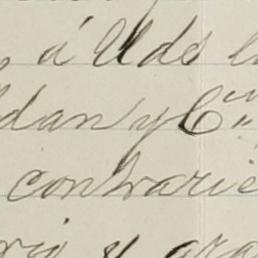 , á Uds l
dan y Cia
contrarie
rio y gra